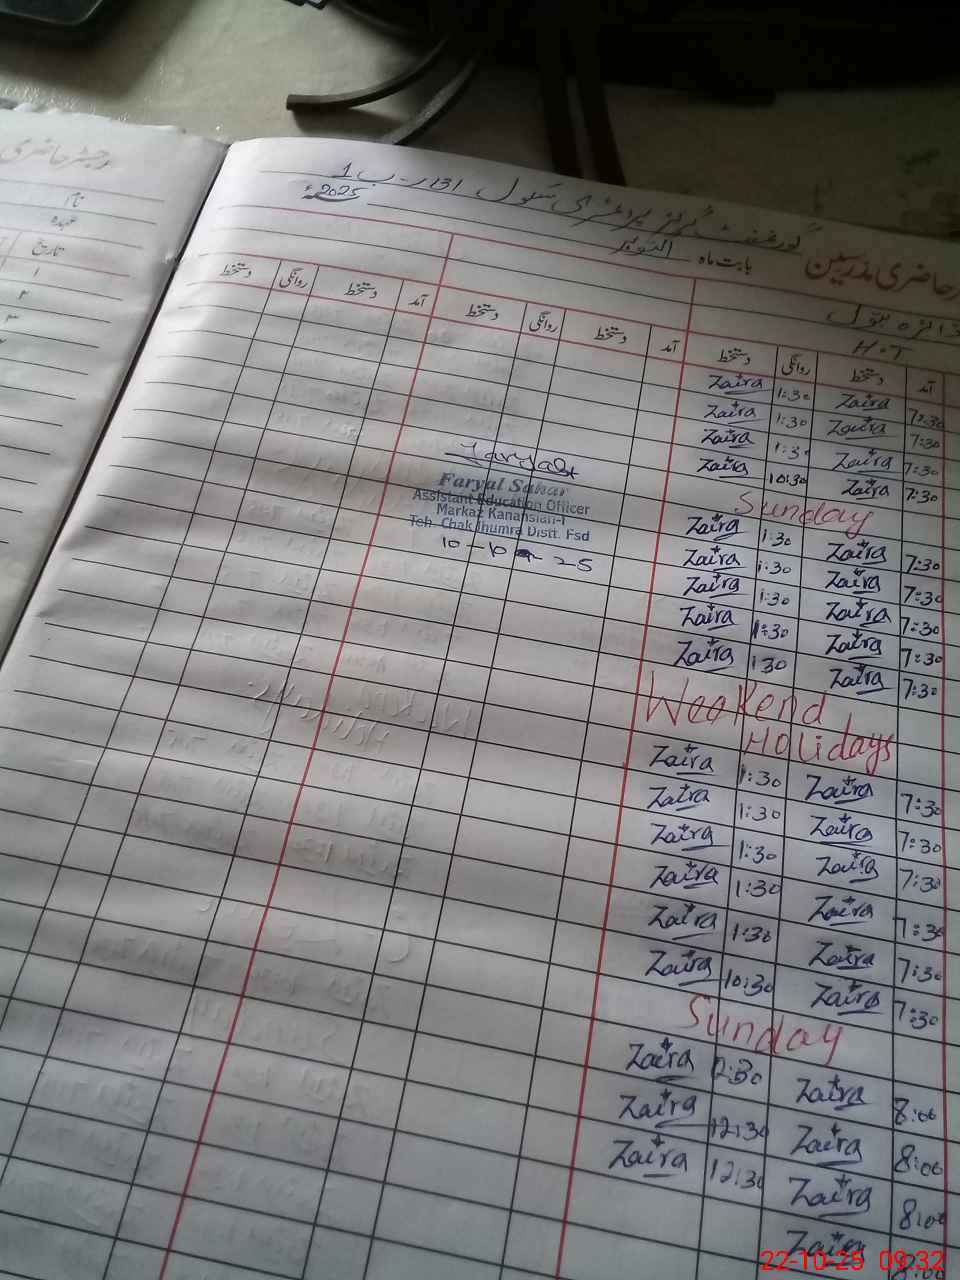 رجسٹر حاضری
نام
عہدہ
تاریخ
۱
۲
۳
گورنمنٹ گرلز پرائمری سکول 131 ر-ب 1
حاضری مدرسین بابت ماہ اکتوبر 2025ء
H.T
آمد دستخط روانگی دستخط آمد دستخط روانگی دستخط آمد دستخط روانگی دستخط
7:30 Zaira 1:30 Zaira
7:30 Zaira 1:30 Zaira
7:30 Zaira 1:30 Zaira
7:30 Zaira 10:30 Zaira
Sunday
7:30 Zaira 1:30 Zaira
7:30 Zaira 1:30 Zaira
7:30 Zaira 1:30 Zaira
7:30 Zaira 1:30 Zaira
7:30 Zaira 130 Zaira
Weekend
Holidays
7:30 Zaira 1:30 Zaira
7:30 Zaira 1:30 Zaira
7:30 Zaira 1:30 Zaira
7:30 Zaira 1:30 Zaira
7:30 Zaira 1:30 Zaira
7:30 Zaira 10:30 Zaira
Sunday
8:00 Zaira 12:30 Zaira
8:00 Zaira 12:30 Zaira
8:00 Zaira 12:30 Zaira
8:00 Zaira
Faryal Sahar
Assistant Education Officer
Markaz Kanahsian-I
Teh. Chak Jhumra Distt. Fsd
10-10-25
22-10-25 09:32